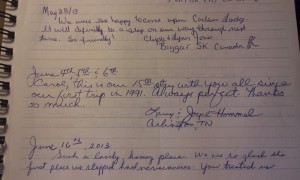 May 28/13
We were so happy to come upon Carlson Lodge
It will definitly be a stop on our way through next
time. So friendly!
Biggar SK Canada
June 4th, 5th & 6th
Carol, this is our 15th stay with you all since
our first trip in 1991. Always perfect. Thanks
so much.
Larry & Joyce Hommel
Arlington, TN
June 16th, 2013
Such a lovely, homey place. We're so glad the
first place we stopped had vacancies. You treated us